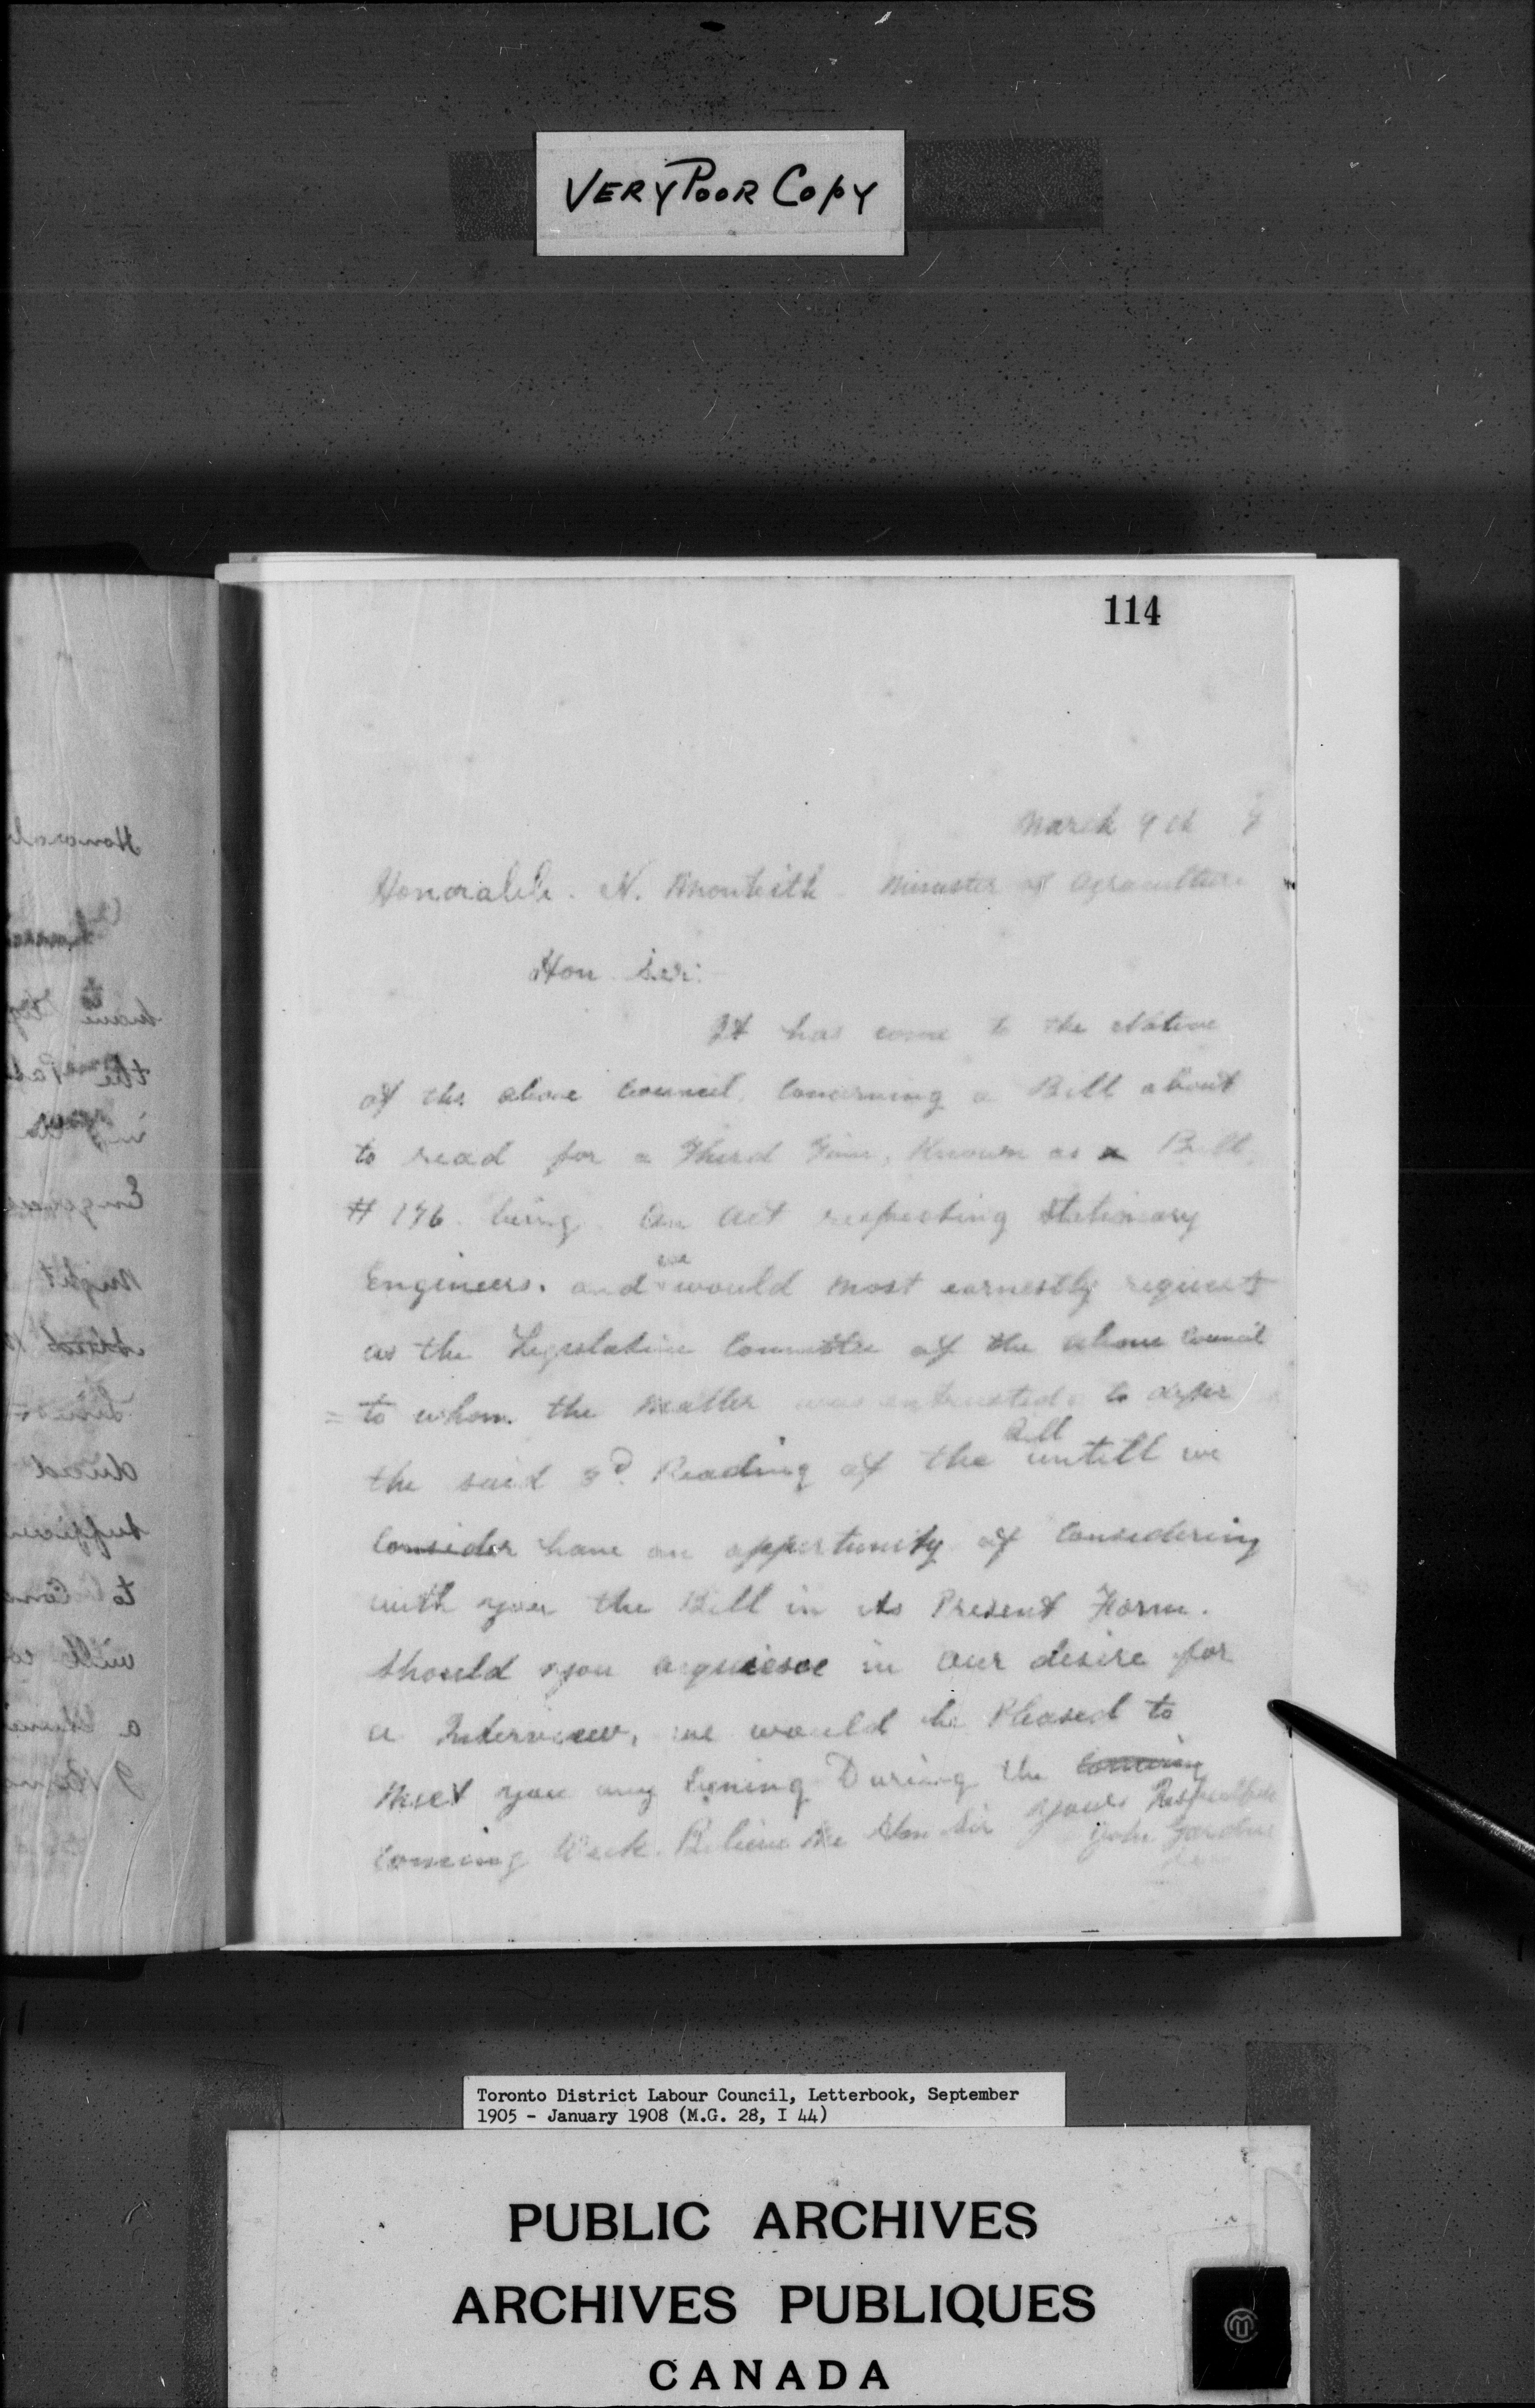 VERY POOR COPY
114
March 9th 7
Honorable. N. Monteith Minister of Agraculture
Hon Sir:
It has come to the Notice
of the above Council, Concerning a Bill about
to read for a Third Time, Known as a Bill
# 196 being An Act respecting Stationary
Engineers. and we would most earnestly request
as the Legislative Committee of the above Council
to whom the Matter was entrusted to defer
the said 3D Reading of the Bill untill we
Consider have an oppertunity of Considering
with you the Bill in its Present Form.
Should you acquiesce in our desire for
a Interview, we would be Pleased to
Meet you any Evening During the Comeing
Comeing Week. Believe Me Hon Sir Yours Respectfully
John Gardner
Toronto District Labour Council, Letterbook, September
1905 - January 1908 (M.G. 28, I 44)
PUBLIC ARCHIVES
ARCHIVES PUBLIQUES
CANADA